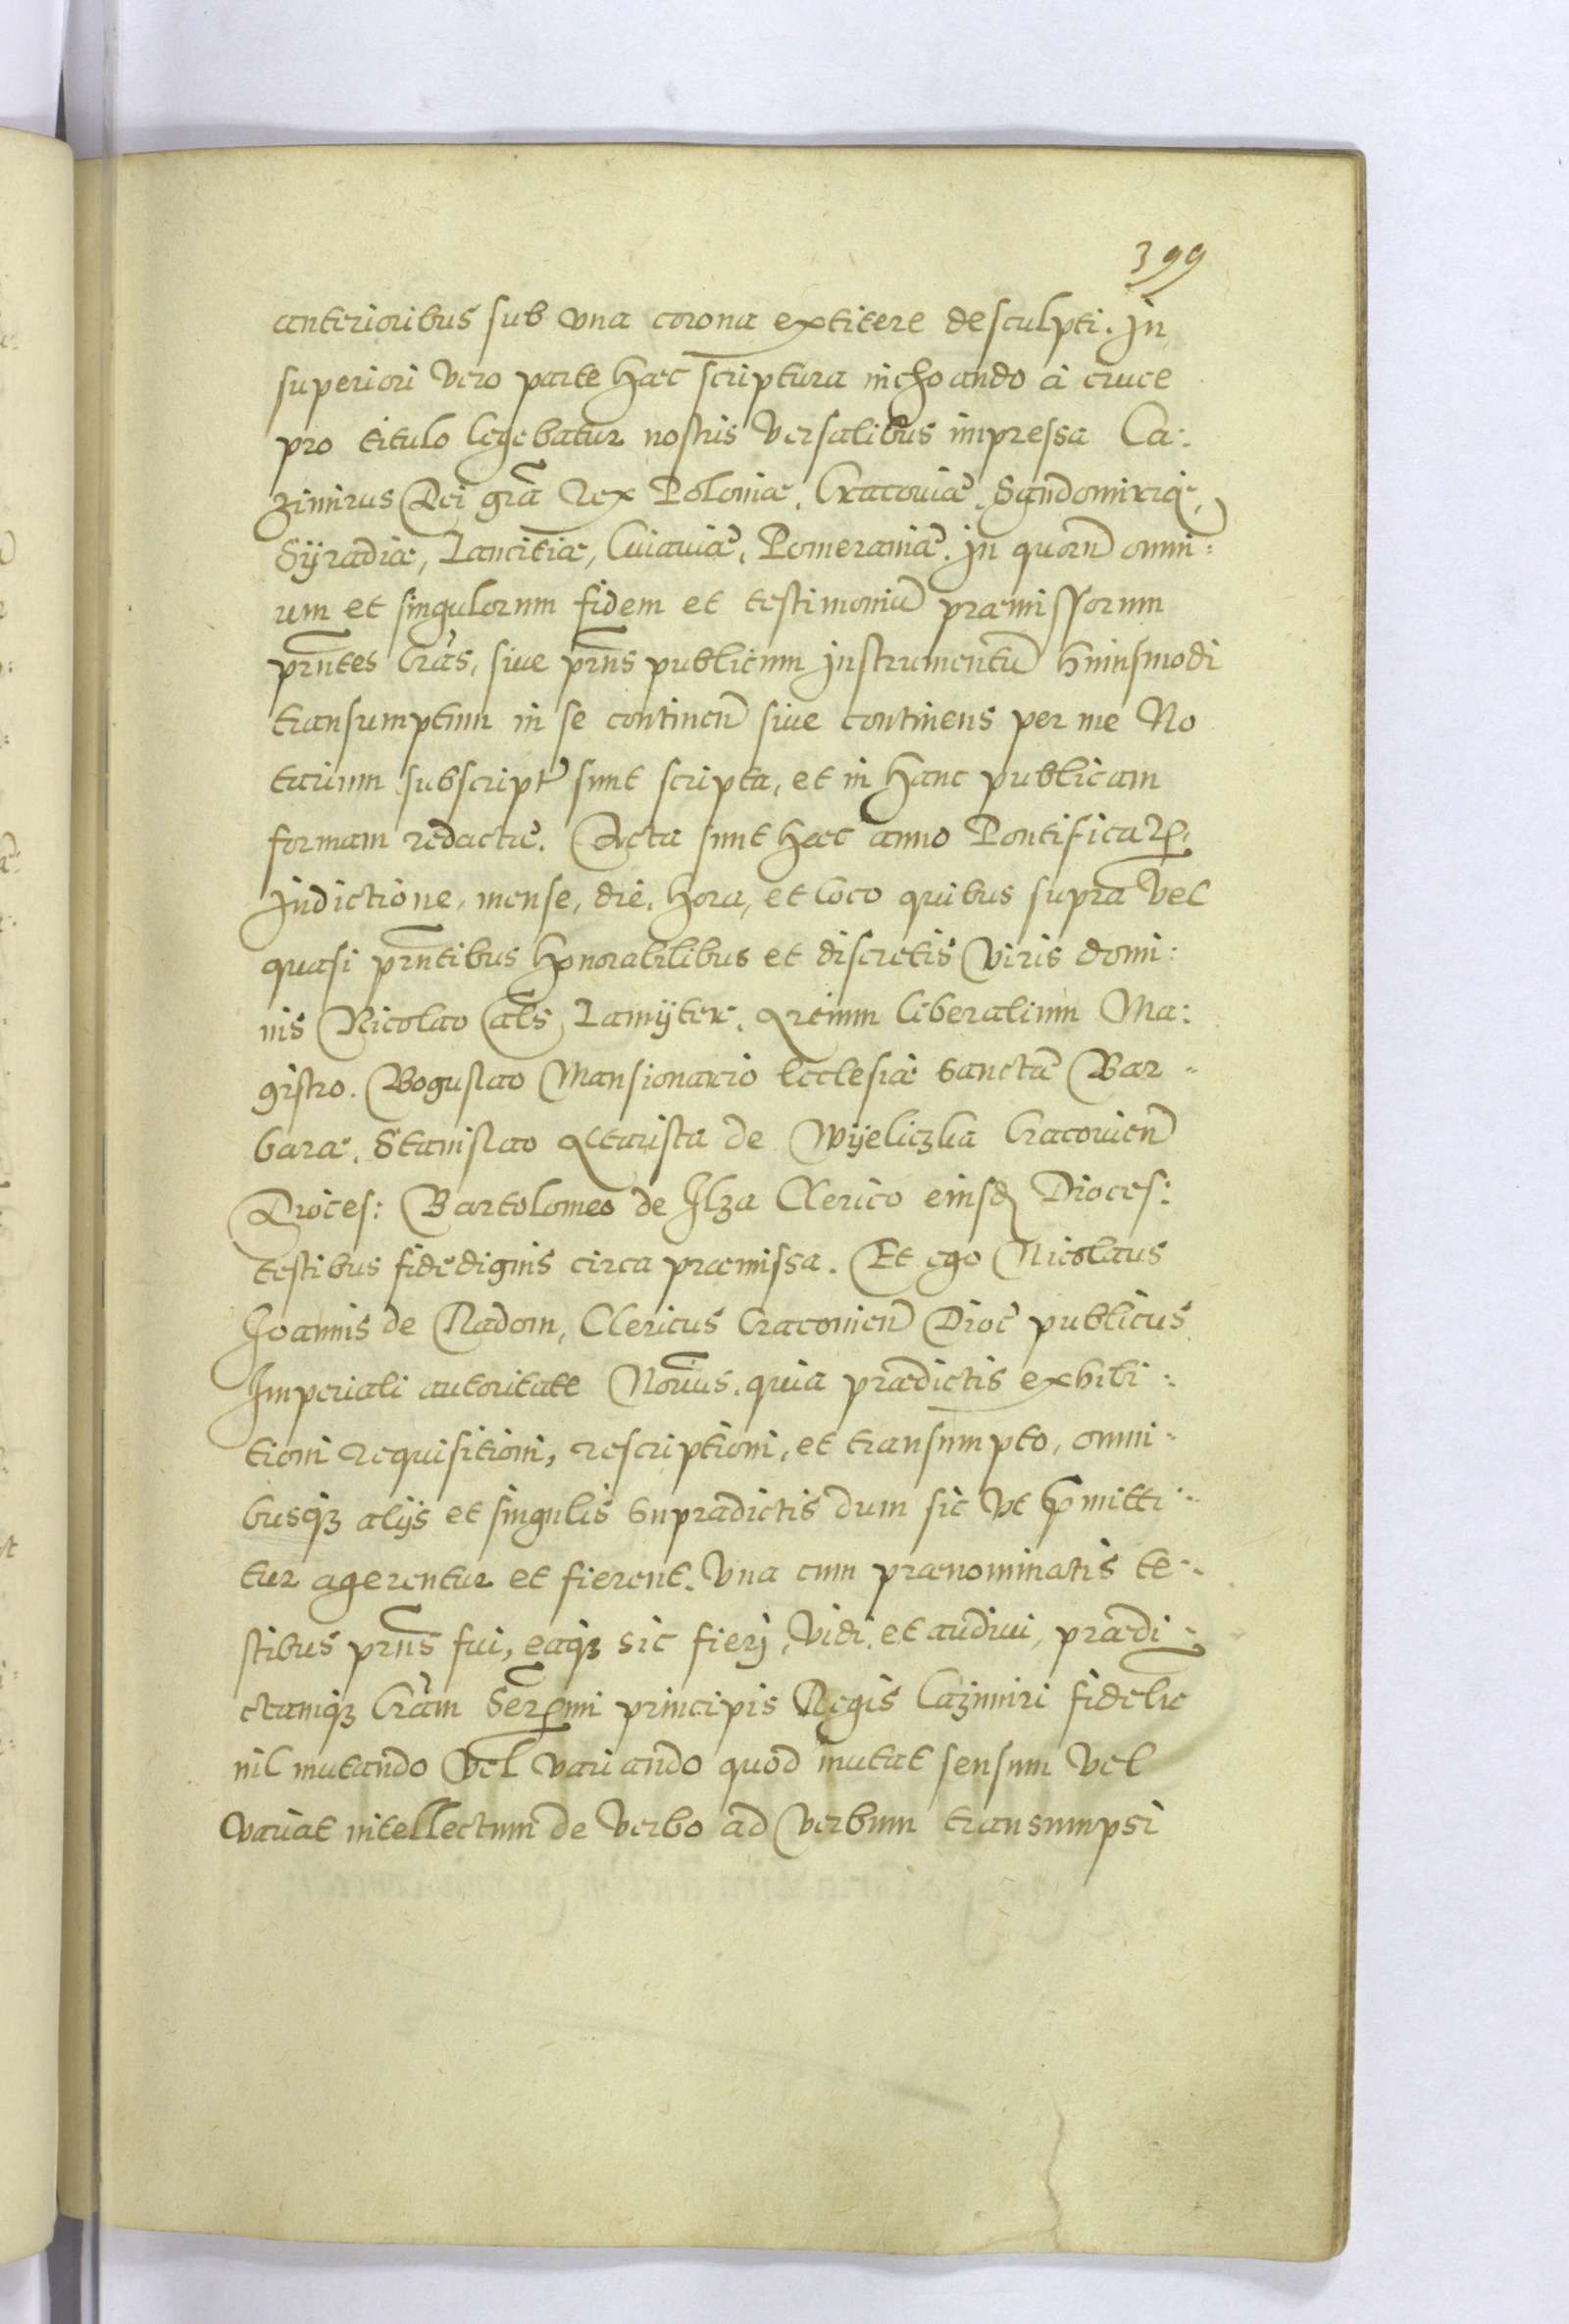 399
anterioribus sub vna corona extitere desculpti. In
superiori vero parte haec scriptura inchoando à cruce
pro titulo legebatur nostris versalibus impressa Ca:
zimirus Dei grã Rex Poloniæ, Cracouiæ, Sandomiriæ,
Syradiæ, Lancitiæ, Cuiauiæ, Pomeraniæ. In quorũ omni:
um et singulorum fidem et testimoniũ præmissorum
prñtes lrãs, siue prñs publicum instrumentũ huiusmodi
transumptum in se continen̄ siue continens per me No
tarium subscript̄ sunt scripta, et in hanc publicam
formam redactæ. Acta sunt haec anno Pontificatꝰ,
Indictione, mense, die, hora, et loco quibus supra vel
quasi prñtibus honorabilibus et discretis viris domi:
nis Nicolao als Lamÿter, Artium liberalium Ma:
gistro. Boguslao Mansionario Ecclesiæ Sanctæ Bar-
baræ, Stanislao Altarista de Wÿeliczka Cracouien̄
Dioces: Bartolomeo de Ilza Clerico eiusd̄ Dioces:
testibus fidedignis circa præmissa. Et ego Nicolaus
Joannis de Radom, Clericus Cracouien̄ Dioc̄ publicus
Imperiali autoritate Noriũs, quia prædictis exhibi:
tioni requisitioni, rescriptioni, et transumpto, omni-
busqꝫ alijs et singulis supradictis dum sic vt p̄mitti-
tur agerentur et fierent. Vna cum prænominatis te-
stibus prñs fui, eaqꝫ sic fieri, vidi, et audiui, prædi-
ctamqꝫ lrãm Serẽmi principis Regis Cazimiri fidelie
nil mutando vel variando quod mutat sensum vel
variat intellectum de verbo ad verbum transumpsi